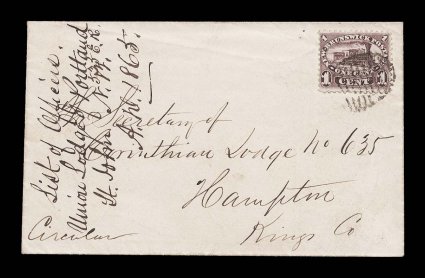 NEW BRUNSWICK POSTAGE
1 1
ONE CENT
CENT
List of Officers.
Union Lodge of Portland
St. John N.B.
A.D. 1865.
Secretary of
Corinthian Lodge No 635
Hampton
Kings Co
Circular